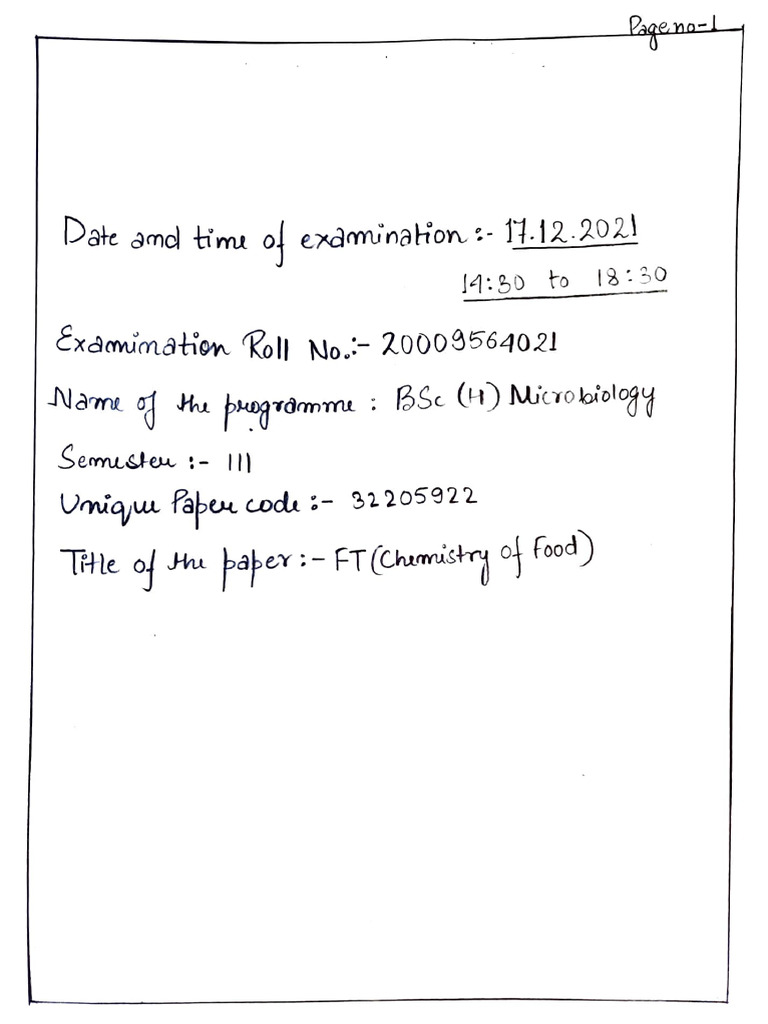 Page no-1
Date and time of examination :- 17.12.2021
14:30 to 18:30
Examination Roll No.:- 20009564021
Name of the programme : BSc (H) Microbiology
Semester :- III
Unique Paper code :- 32205922
Title of the paper :- FT (Chemistry of Food)